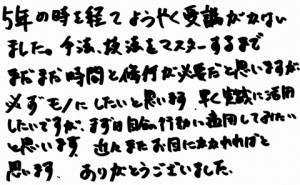 5年の時を経てようやく受講がかない
ました。手法、技法をマスターするまで
まだまだ時間と修行が必要だと思いますが、
必ずモノにしたいと思います。早く実践に活用
したいですが、まず自分の行動に適用してみたい
と思います。近々またお目にかかれればと
思います。ありがとうございました。